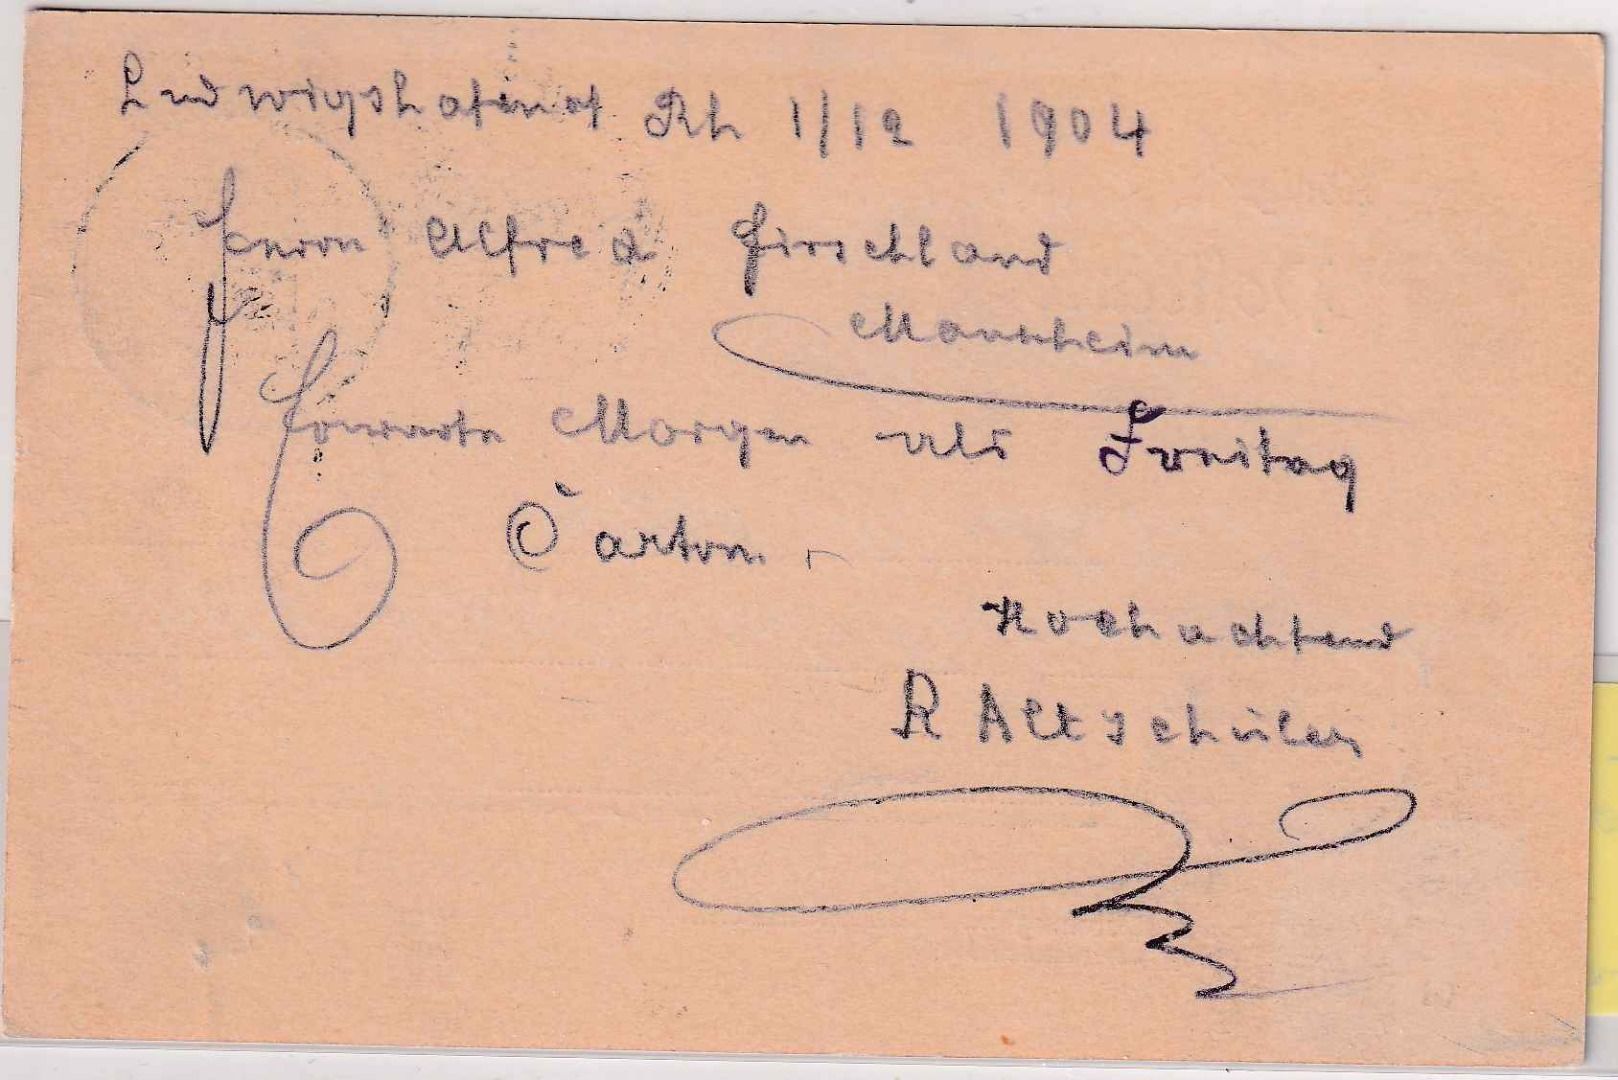 Ludwigshafen a/ Rh 1/12 1904
Herrn Alfred Hirschland
Mannheim
Erwarte Morgen als Freitag
Carton.
Hochachtend
R Altschüler